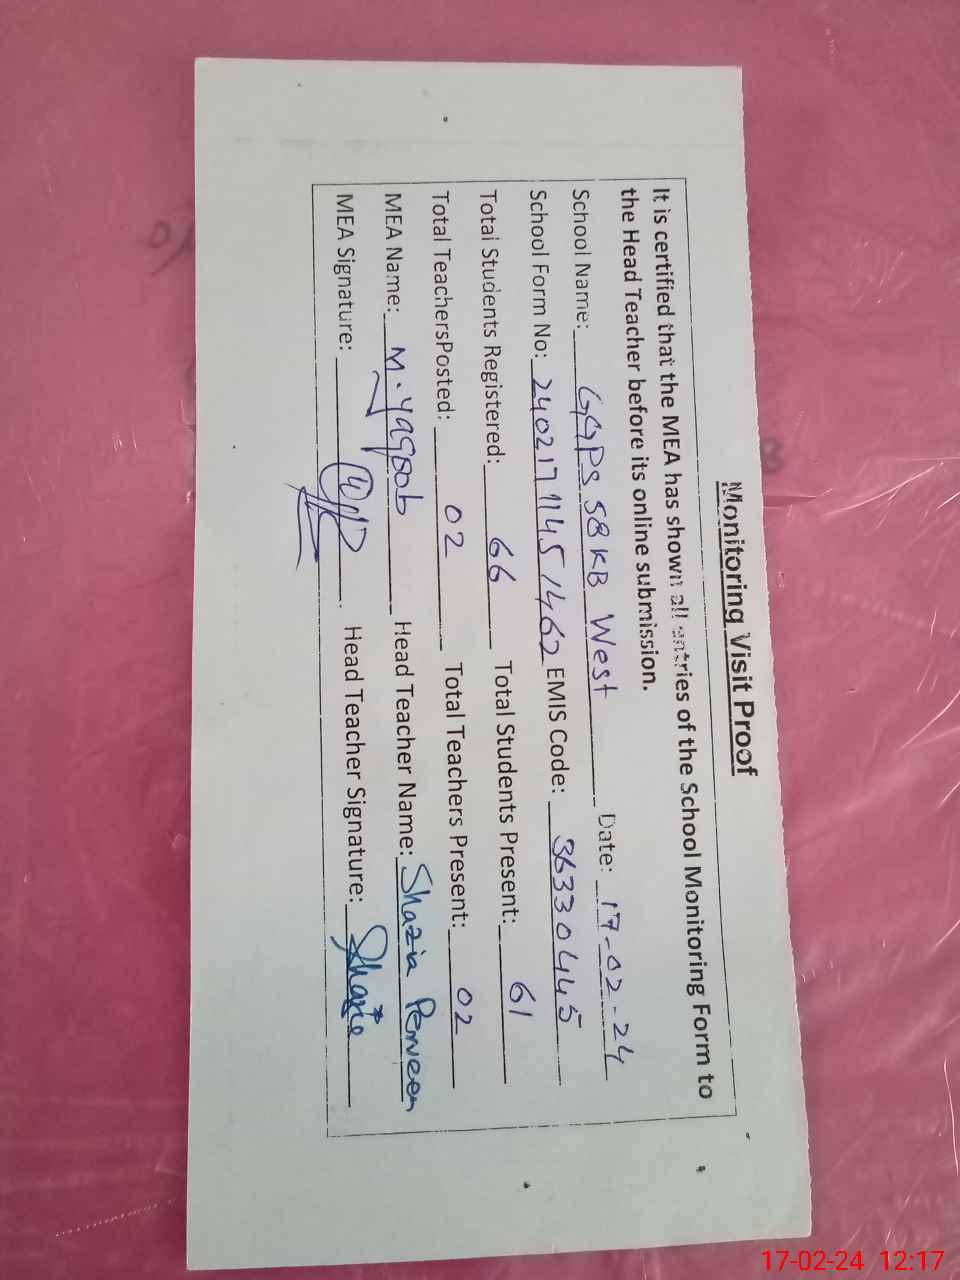 Monitoring Visit Proof
It is certified that the MEA has shown all entries of the School Monitoring Form to
the Head Teacher before its online submission.
School Name: GGPS 58KB West Date: 17-02-24
School Form No: 24021711451462 EMIS Code: 36330445
Total Students Registered: 66 Total Students Present: 61
Total TeachersPosted: 02 Total Teachers Present: 02
MEA Name: M. Yaqoob Head Teacher Name: Shazia Perveen
MEA Signature: Head Teacher Signature: Shazia
17-02-24 12:17